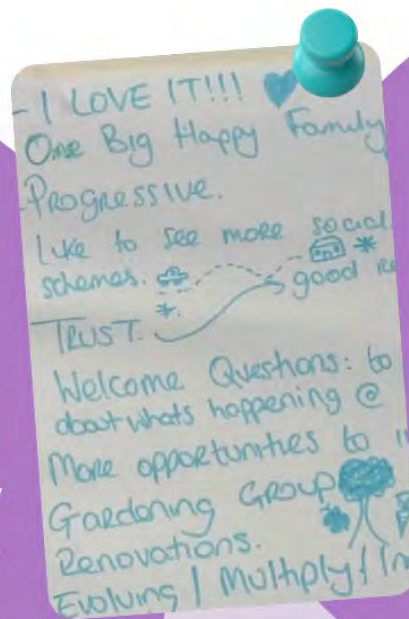 - I LOVE IT!!!
One Big Happy Family
- PROGRESSIVE.
Like to see more social
schemes.
good Re
TRUST.
Welcome Questions: to
about whats happening @
More opportunities to
Gardening GROUP
Renovations.
Evolving / Multiply /